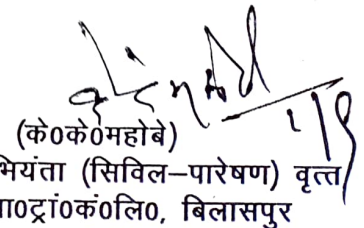 (के०के०महोबे)
भियंता (सिविल–पारेषण) वृत्त
ा०ट्रां०कं०लि०, बिलासपुर